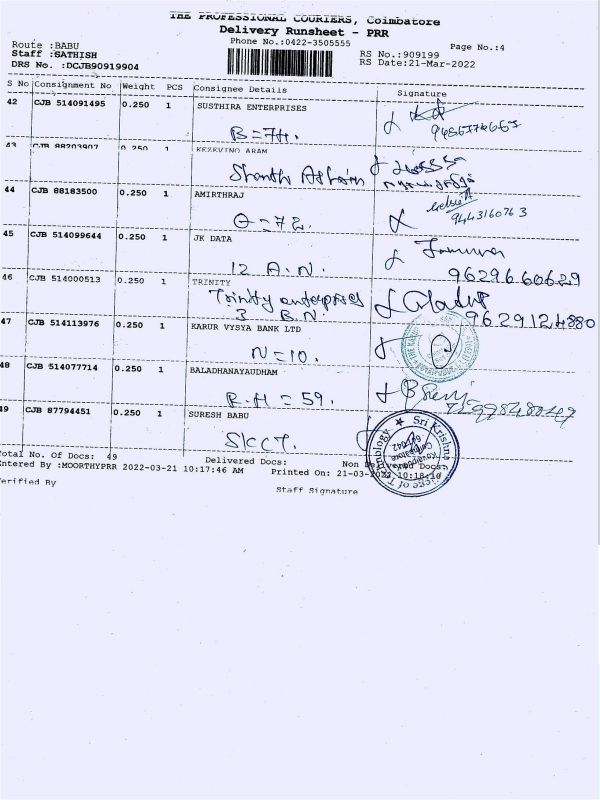 THE PROFESSIONAL COURIERS, Coimbatore
Delivery Runsheet - PRR
Phone No.:0422-3505555
Page No.:4
Route :BABU
Staff :SATHISH
RS No.:909199
DRS No. :DCJB90919904
RS Date:21-Mar-2022
S No Consignment No Weight PCS Consignee Details Signature
42 CJB 514091495 0.250 1 SUSTHIRA ENTERPRISES
B=74.
43 CJB 88203907 0.250 1 KEZEVINO ARAM
44 CJB 88183500 0.250 1 AMIRTHRAJ
9443160763
45 CJB 514099644 0.250 1 JK DATA
12 A.N. 9629660629
46 CJB 514000513 0.250 1 TRINITY
Trinity enterprises
3 B.N. 9629124880
47 CJB 514113976 0.250 1 KARUR VYSYA BANK LTD
N=10.
48 CJB 514077714 0.250 1 BALADHANAYAUDHAM
R.H = 59.
49 CJB 87794451 0.250 1 SURESH BABU
SKCT.
Sri Krishna College of Technology
Kovaipudur
Coimbatore
641042
Total No. Of Docs: 49 Delivered Docs: Non Delivered Docs:
Entered By :MOORTHYPRR 2022-03-21 10:17:46 AM Printed On: 21-03-2022 10:18:10
Verified By Staff Signature